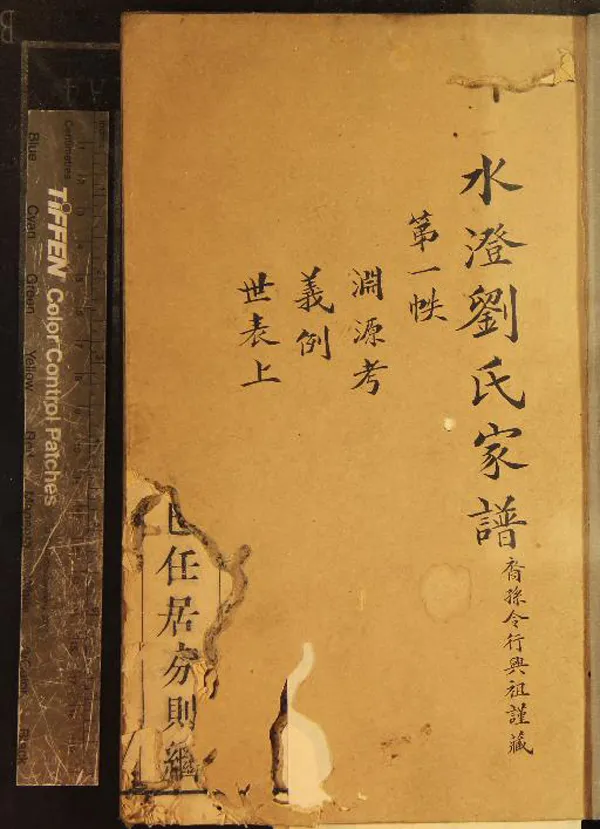 水澄劉氏家譜
裔孫令行興祖謹藏
第一帙
淵源考
義例
世表上
任居分則繼
TIFFEN Color Control Patches
Centimetres
Blue
Cyan
Green
Yellow
Red